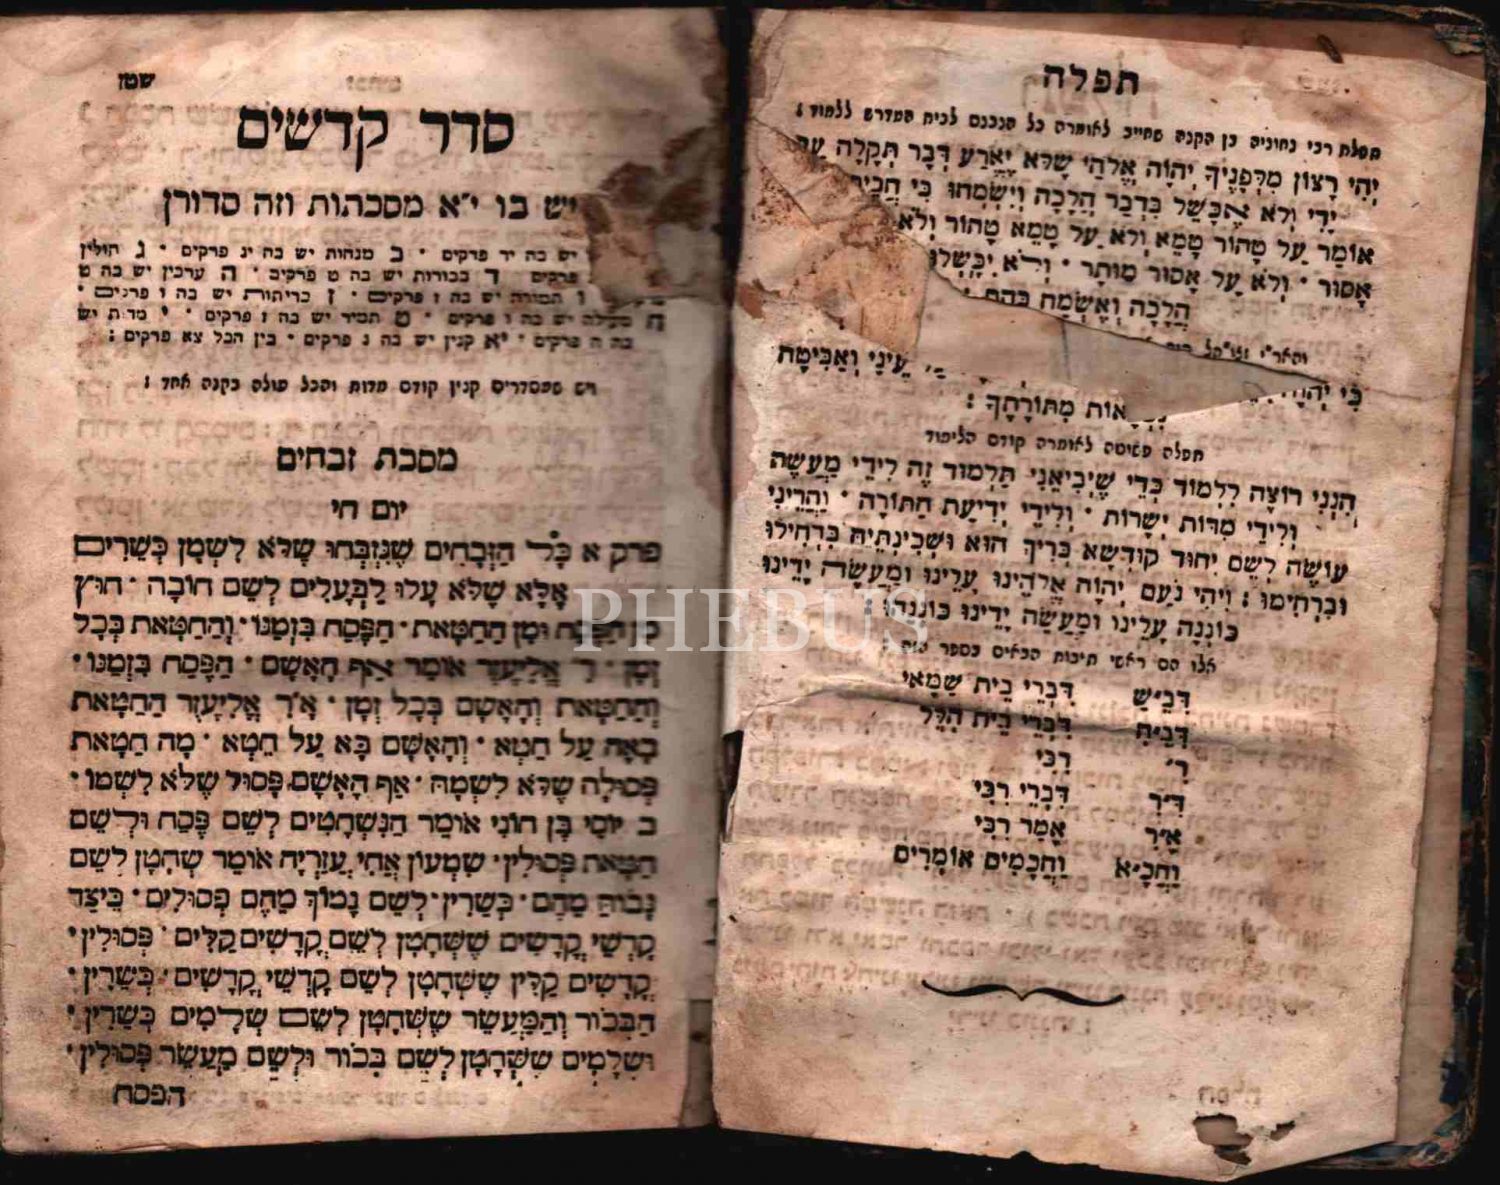 תפלה
תפלת רבי נחוניה בן הקנה שחייב לאומרה כל הנכנס לבית המדרש ללמוד :
יְהִי רָצוֹן מִלְּפָנֶיךָ יְהוָה אֱלֹהַי שֶׁלֹּא יֶאֱרַע דְּבַר תְּקָלָה עַל
יָדִי וְלֹא אֶכָּשֵׁל בִּדְבַר הֲלָכָה וְיִשְׂמְחוּ בִּי
אוֹמַר עַל טָהוֹר טָמֵא וְלֹא עַל טָמֵא טָהוֹר וְלֹא
אָסוּר · וְלֹא עַל אָסוּר מוּתָר · וְלֹא יִכָּשְׁלוּ
הֲלָכָה וְאֶשְׂמַח בָּהֶם :
כִּי עֵינַי וְאַבִּיטָה
מִתּוֹרָתֶךָ :
תפלה פשוטה לאומרה קודם הלימוד
הִנְנִי רוֹצֶה לִלְמוֹד כְּדֵי שֶׁיְּבִיאֵנִי תַּלְמוּד זֶה לִידֵי מַעֲשֶׂה
וְלִידֵי מִדּוֹת יְשָׁרוֹת · וְלִידֵי יְדִיעַת הַתּוֹרָה · וַהֲרֵינִי
עוֹשֶׂה לְשֵׁם יִחוּד קוּדְשָׁא בְּרִיךְ הוּא וּשְׁכִינְתֵּיהּ בִּדְחִילוּ
וּרְחִימוּ : וִיהִי נֹעַם יְהוָה אֱלֹהֵינוּ עָלֵינוּ וּמַעֲשֵׂה יָדֵינוּ
כּוֹנְנָה עָלֵינוּ וּמַעֲשֵׂה יָדֵינוּ כּוֹנְנֵהוּ :
אלו הם ראשי תיבות הבאים בספר הזה :
דְּבֵ״שׁ דִּבְרֵי בֵית שַׁמַּאי
דְּבֵ״ה דִּבְרֵי בֵית הִלֵּל
ר׳ רַבִּי
דִּ״ר דִּבְרֵי רַבִּי
אָ״ר אָמַר רַבִּי
וַחֲכָ״א וַחֲכָמִים אוֹמְרִים
שטן
סדר קדשים
יש בו י״א מסכתות וזה סדורן
יש בה יד פרקים · ב מנחות יש בה יג פרקים · ג חולין
פרקים ד בכורות יש בה ט פרקים · ה ערכין יש בה ט
ו תמורה יש בה ז פרקים · ז כריתות יש בה ו פרקים ·
ח מעילה יש בה ו פרקים · ט תמיד יש בה ז פרקים · י מדות יש
בה ה פרקים · יא קנין יש בה ג פרקים · בין הכל צא פרקים :
ויש שמסדרים קנין קודם מדות והכל עולה בקנה אחד :
מסכת זבחים
יום חי
פרק א כָּל הַזְּבָחִים שֶׁנִּזְבְּחוּ שֶׁלֹּא לִשְׁמָן כְּשֵׁרִים
אֶלָּא שֶׁלֹּא עָלוּ לַבְּעָלִים לְשֵׁם חוֹבָה · חוּץ
מִן הַפֶּסַח וּמִן הַחַטָּאת · הַפֶּסַח בִּזְמַנּוֹ · וְהַחַטָּאת בְּכָל
זְמַן · ר׳ אֱלִיעֶזֶר אוֹמֵר אַף הָאָשָׁם · הַפֶּסַח בִּזְמַנּוֹ ·
וְהַחַטָּאת וְהָאָשָׁם בְּכָל זְמַן · אָ״ר אֱלִיעֶזֶר הַחַטָּאת
בָּאָה עַל חֵטְא · וְהָאָשָׁם בָּא עַל חֵטְא · מָה חַטָּאת
פְּסוּלָה שֶׁלֹּא לִשְׁמָהּ · אַף הָאָשָׁם פָּסוּל שֶׁלֹּא לִשְׁמוֹ ·
ב יוֹסֵי בֶּן חוֹנִי אוֹמֵר הַנִּשְׁחָטִים לְשֵׁם פֶּסַח וּלְשֵׁם
חַטָּאת פְּסוּלִין · שִׁמְעוֹן אֲחִי עֲזַרְיָה אוֹמֵר שְׁחָטָן לְשֵׁם
גָּבוֹהַּ מֵהֶם · כְּשֵׁרִין · לְשֵׁם נָמוֹךְ מֵהֶם פְּסוּלִים · כֵּיצַד
קָדְשֵׁי קָדָשִׁים שֶׁשְּׁחָטָן לְשֵׁם קָדָשִׁים קַלִּים · פְּסוּלִין ·
קָדָשִׁים קַלִּין שֶׁשְּׁחָטָן לְשֵׁם קָדְשֵׁי קָדָשִׁים · כְּשֵׁרִין ·
הַבְּכוֹר וְהַמַּעֲשֵׂר שֶׁשְּׁחָטָן לְשֵׁם שְׁלָמִים כְּשֵׁרִין ·
וּשְׁלָמִים שֶׁשְּׁחָטָן לְשֵׁם בְּכוֹר וּלְשֵׁם מַעֲשֵׂר פְּסוּלִין ·
הפסח
PHEBUS